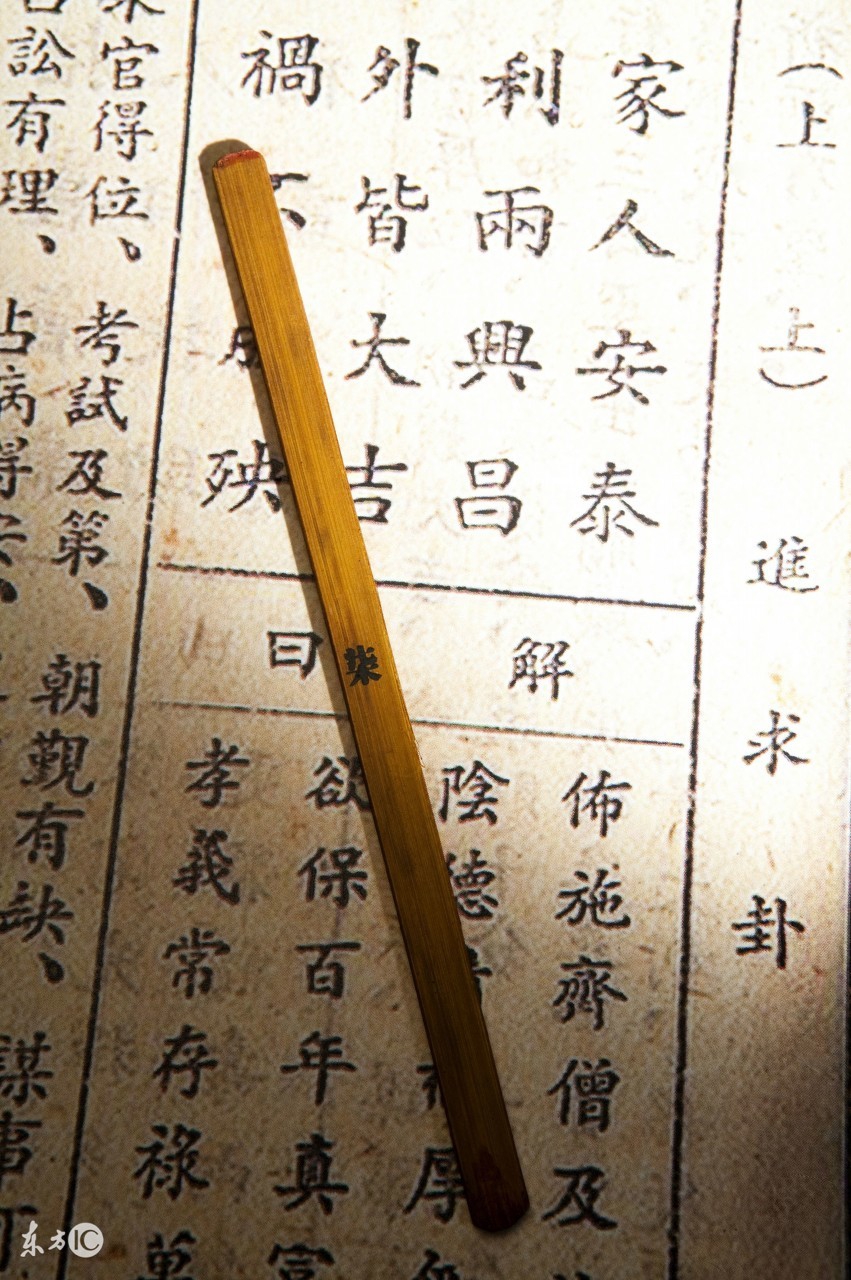 （上上）進求卦
家人安泰
利兩興昌
外皆大吉
禍殃
解曰
佈施齋僧及
陰德厚
欲保百年真富
孝義常存祿萬
官得位、考試及第、朝覲有缺、
訟有理、占病得安、謀事可
柒
东方IC